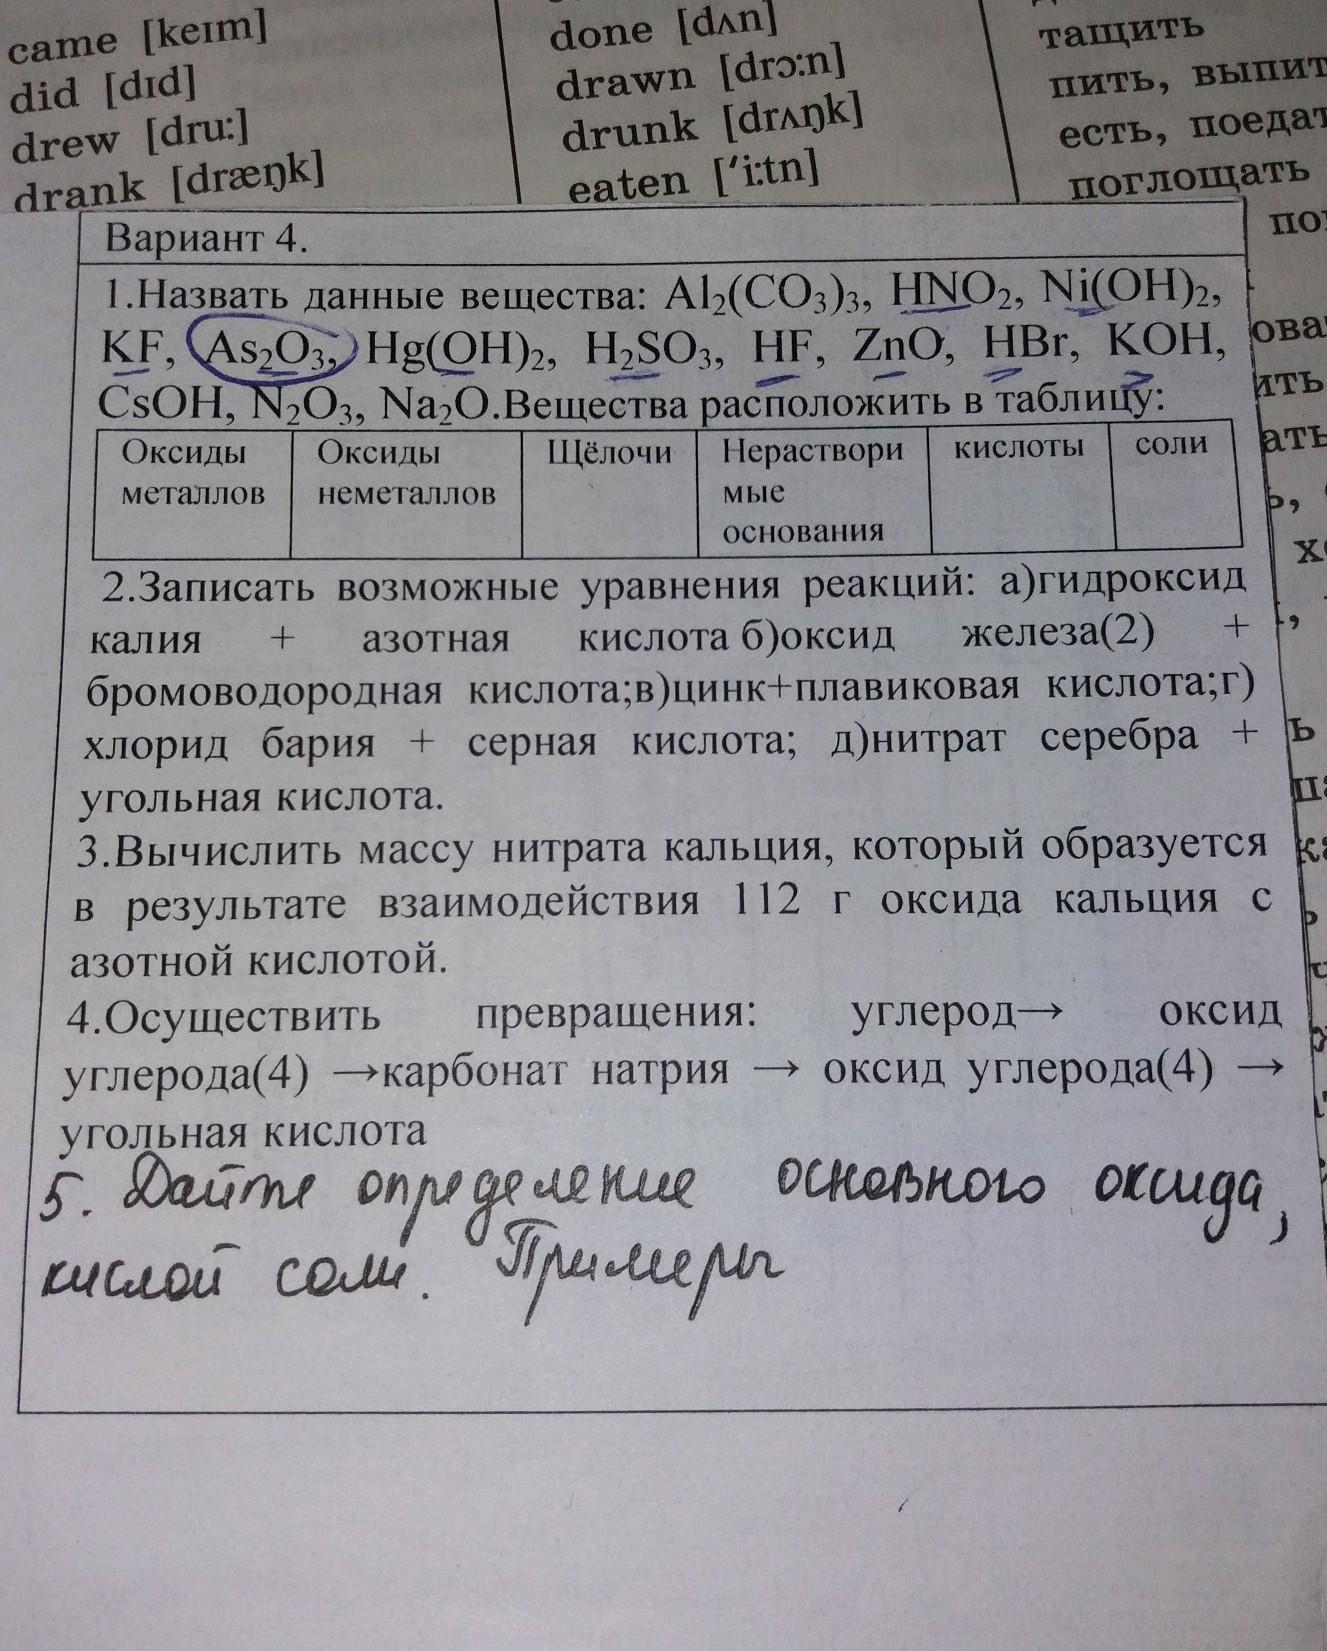 came [keɪm]
did [dɪd]
drew [dru:]
drank [dræŋk]
done [dʌn]
drawn [drɔ:n]
drunk [drʌŋk]
eaten [ʹi:tn]
тащить
пить, выпит
есть, поедат
поглощать
Вариант 4.
1.Назвать данные вещества: Al₂(CO₃)₃, HNO₂, Ni(OH)₂,
KF, As₂O₃, Hg(OH)₂, H₂SO₃, HF, ZnO, HBr, KOH,
CsOH, N₂O₃, Na₂O.Вещества расположить в таблицу:
Оксиды металлов
Оксиды неметаллов
Щёлочи
Нераствори
мые
основания
кислоты
соли
2.Записать возможные уравнения реакций: а)гидроксид
калия + азотная кислота б)оксид железа(2) +
бромоводородная кислота;в)цинк+плавиковая кислота;г)
хлорид бария + серная кислота; д)нитрат серебра +
угольная кислота.
3.Вычислить массу нитрата кальция, который образуется
в результате взаимодействия 112 г оксида кальция с
азотной кислотой.
4.Осуществить превращения: углерод→ оксид
углерода(4) →карбонат натрия → оксид углерода(4) →
угольная кислота
5. Дайте определение основного оксида,
кислой соли. Примеры